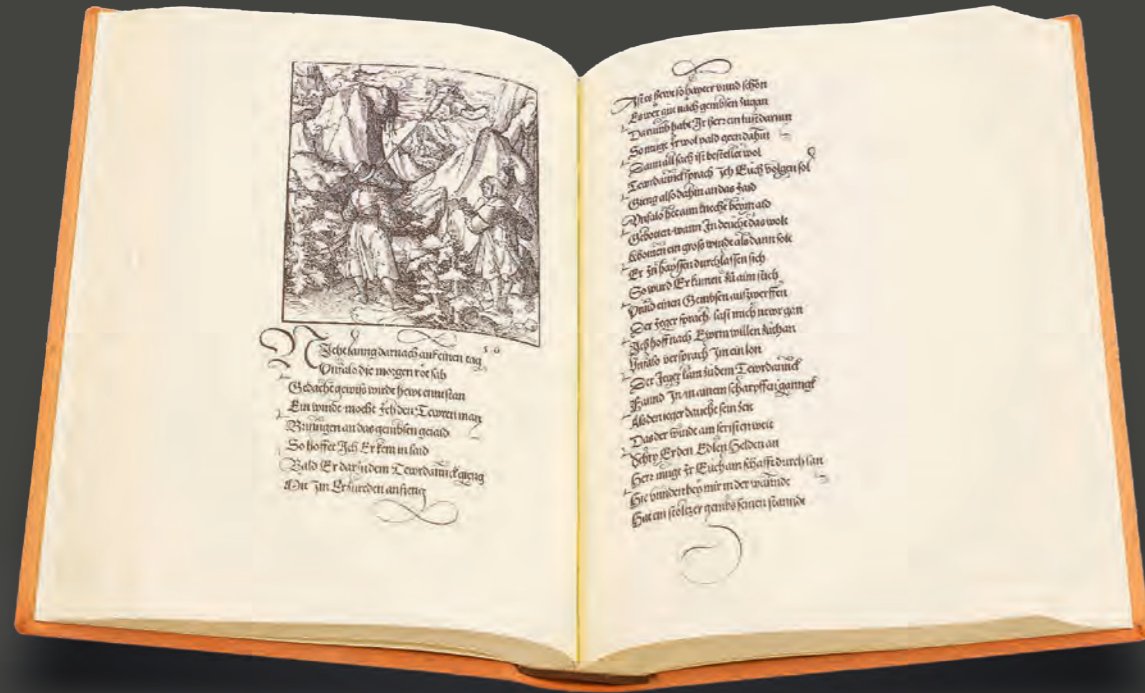 Nicht lanng darnach auf einen tag
Unfalo die morgen röt sah
Gedacht gewiß wirdt hewt ennstan
Ein windt mocht Ich den Tewren man
Bringen an das gembsen geiaid
So hoffet Ich Er kem in laid
Bald Er dar zu dem Tewrdannck gieng
Mit Im Er zureden anfieng
Ist es hewt so hayter vnnd schön
Es wer gut nach gembsen zugan
Darumb habt Ir herr ein lust darinn
So mugt Ir wol pald geen dahin
Dann all sach ist bestellet wol
Tewrdannck sprach Ich Euch volgen sol
Gieng also dahin an das Jaid
Unfalo het aim knecht beym aid
Gebotten wann In deucht das wolt
Komen ein gross windt als dann solt
Er In hayssen durchlassen sich
So wurd Er kumen zu aim stich
Vnnd einen Gembsen ausszwerffen
Der Jeger sprach last mich newr gan
Ich hoff nach Ewrm willen zuthan
Unfalo versprach Im ein lon
Der Jeger kam zu dem Tewrdannck
Fannd In in ainem scharpffen ganngk
Als den jeger daucht sein zeit
Das der windt am
Schry Er den Edlen Helden an
Herr mugt Ir Euch am schafft durch lan
Hie vnnden bey mir in der wannde
Hat ein stoltzer gembs seinen stannde